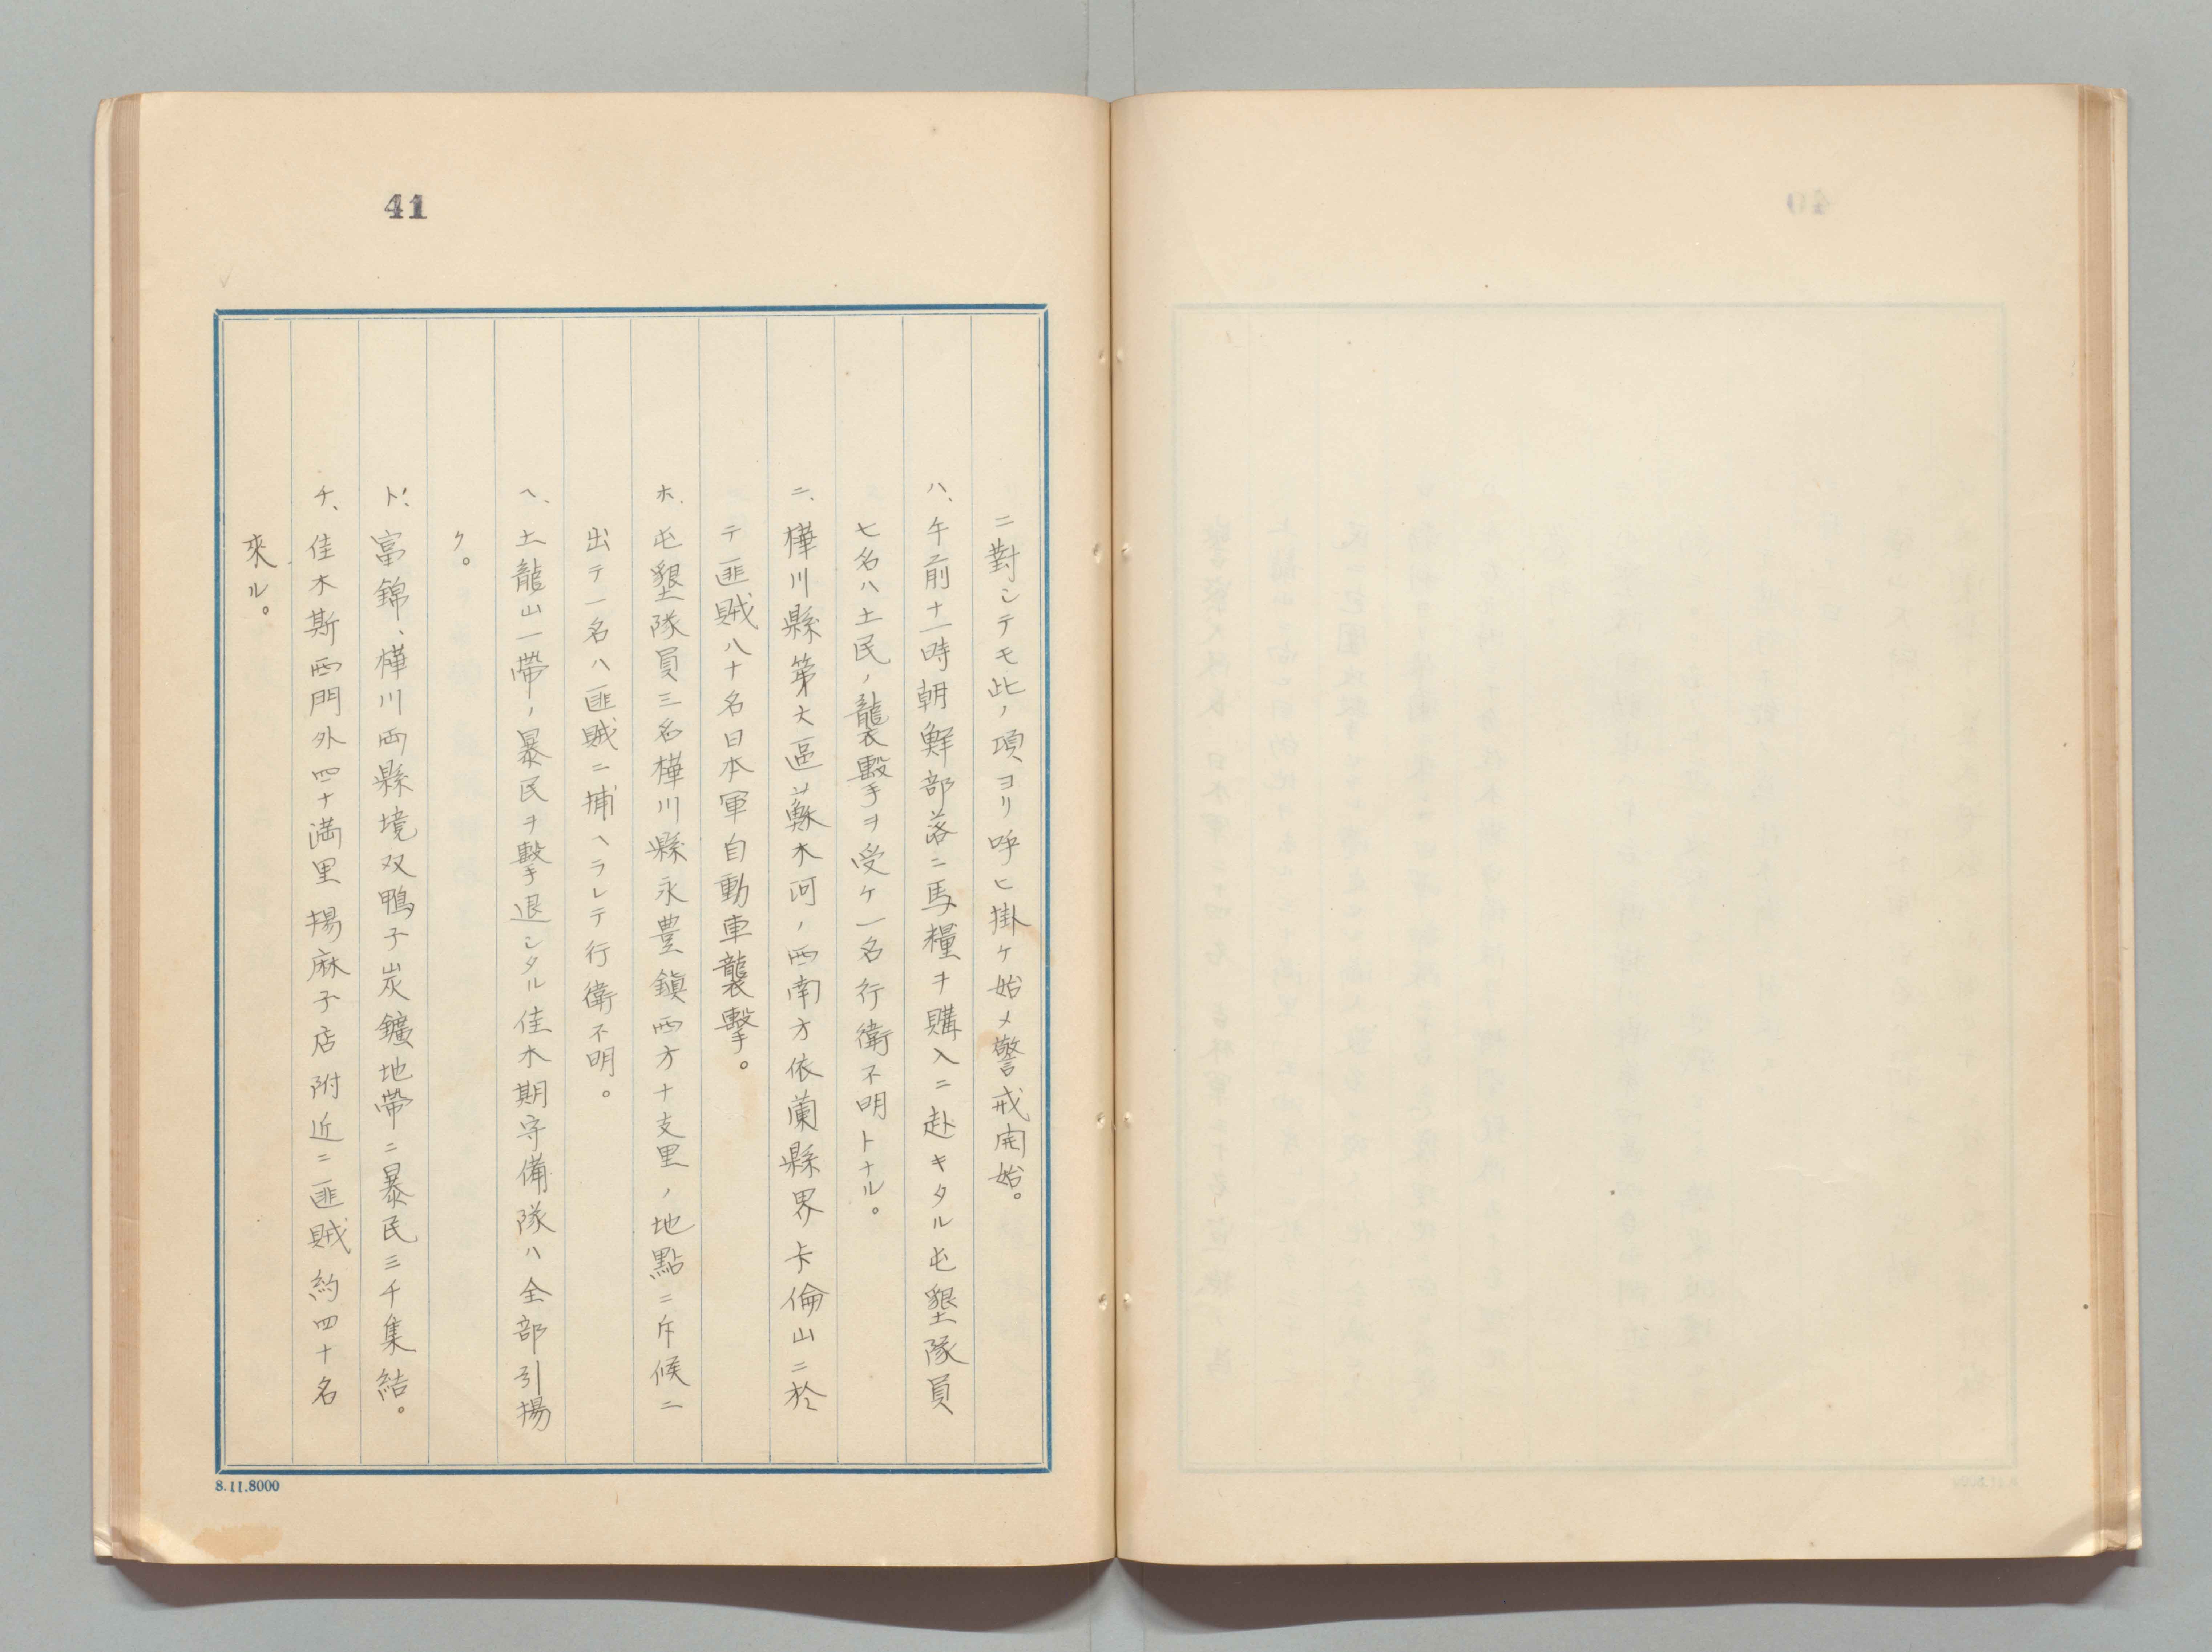 41
ニ對シテモ此ノ項ヨリ呼ヒ掛ケ始メ警戒開始。
ハ、午前十一時朝鮮部落ニ馬糧ヲ購入ニ赴キタル屯墾隊員
七名ハ土民ノ襲擊ヲ受ケ一名行衛不明トナル。
ニ、樺川縣第大區蘇木河ノ西南方依蘭縣界卡倫山ニ於
テ匪賊八十名日本軍自動車襲擊。
ホ、屯墾隊員三名樺川縣永豊鎭西方十支里ノ地點ニ斥候ニ
出テ一名ハ匪賊ニ捕ヘラレテ行衛不明。
ヘ、土龍山一帶ノ暴民ヲ擊退シタル佳木期守備隊ハ全部引揚
ク。
ト、富錦、樺川両縣境双鴨子炭鑛地帶ニ暴民三千集結。
チ、佳木斯西門外四十満里楊麻子店附近ニ匪賊約四十名
來ル。
8.11.8000